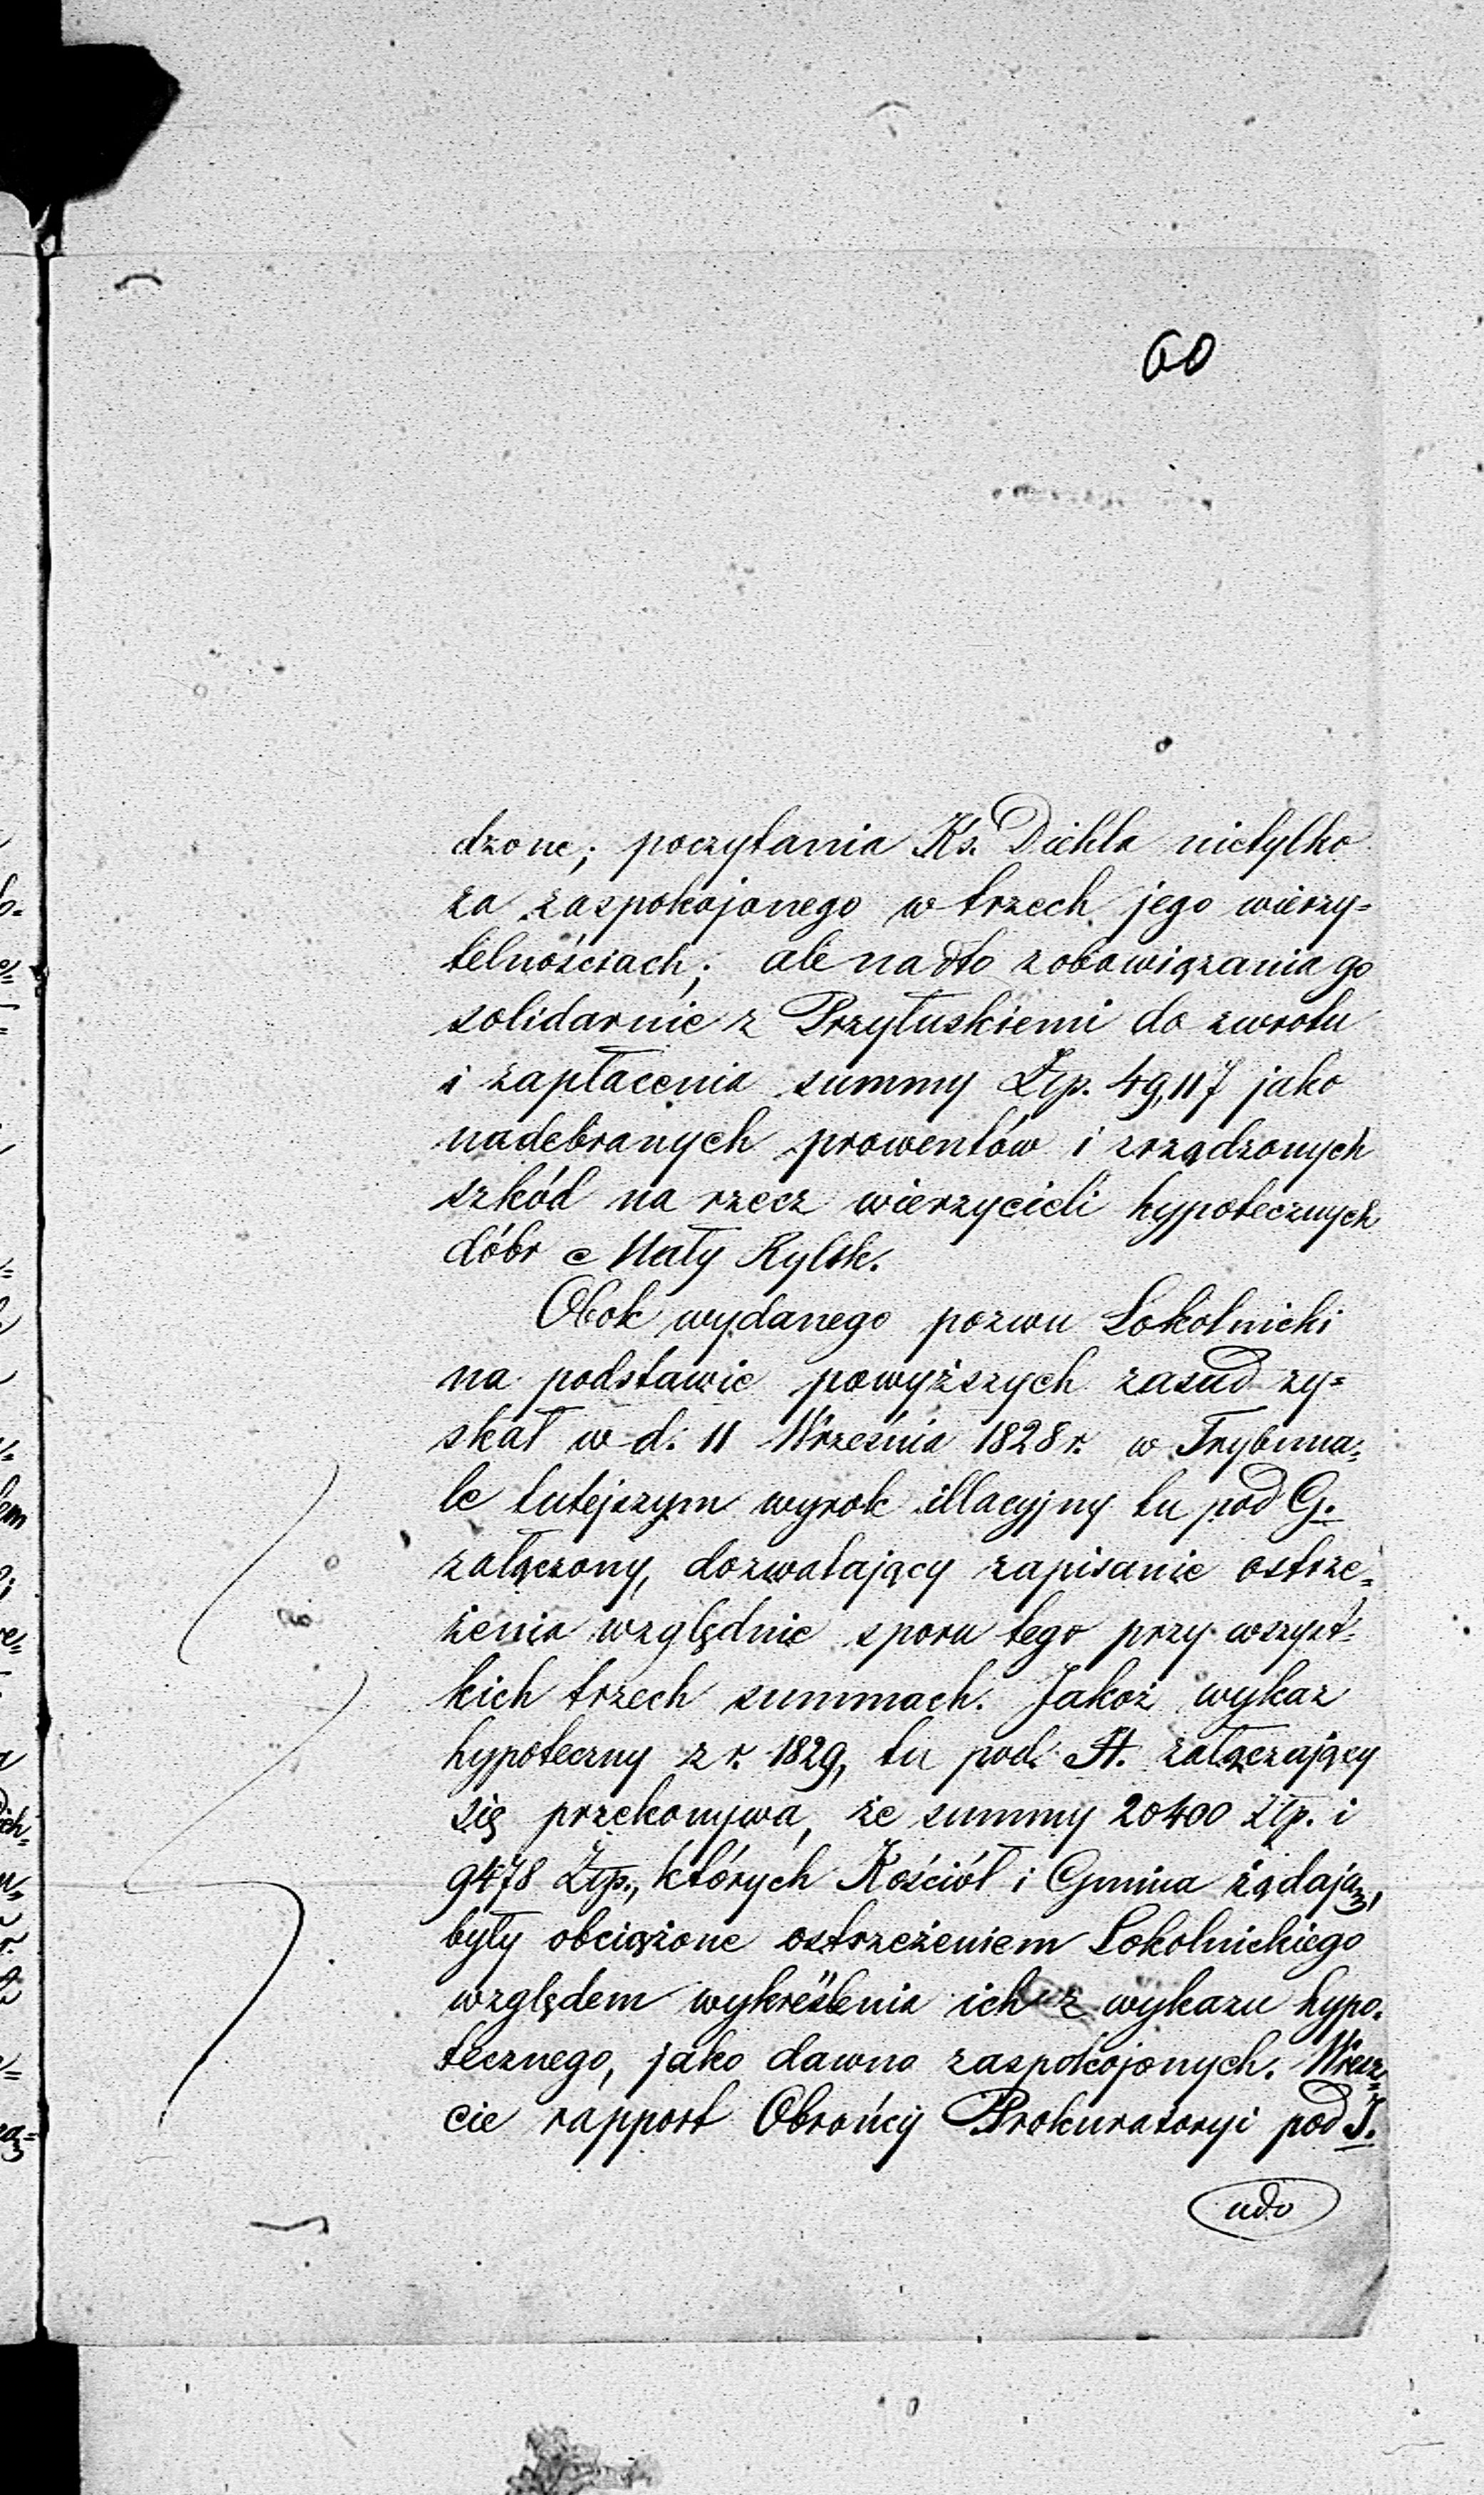 60
dzone; poczytania Ks. Diehla nietylko
za zaspokojonego w trzech jego wierzy=
telnościach; ale nadto zobowiązania go
solidarnie z Przyłuskiemi do zwrotu
i zapłacenia summy Złp. 49,117 jako
nadebranych prowentów i zrządzonych
szkód na rzecz wierzycieli hypotecznych
dóbr Mały Rylsk.
Obok wydanego pozwu Sokolnicki
na podstawie powyższych zasad zy=
skał w d. 11 Września 1828 r. w Trybuna=
le tutejszym wyrok illacyjny tu pod G.
załączony, dozwalający zapisanie ostrze=
żenia względnie sporu tego przy wszyst=
kich trzech summach. Jakoż wykaz
hypoteczny z r. 1829, tu pod H. załączający
się przekonywa, że summy 20400 Złp. i
9478 Złp., których Kościół i Gmina żądają,
były obciążone ostrzeżeniem Sokolnickiego
względem wykreślenia ich z wykazu hypo=
tecznego, jako dawno zaspokojonych. Wresz=
cie rapport Obrońcy Prokuratoryi pod J.
udo